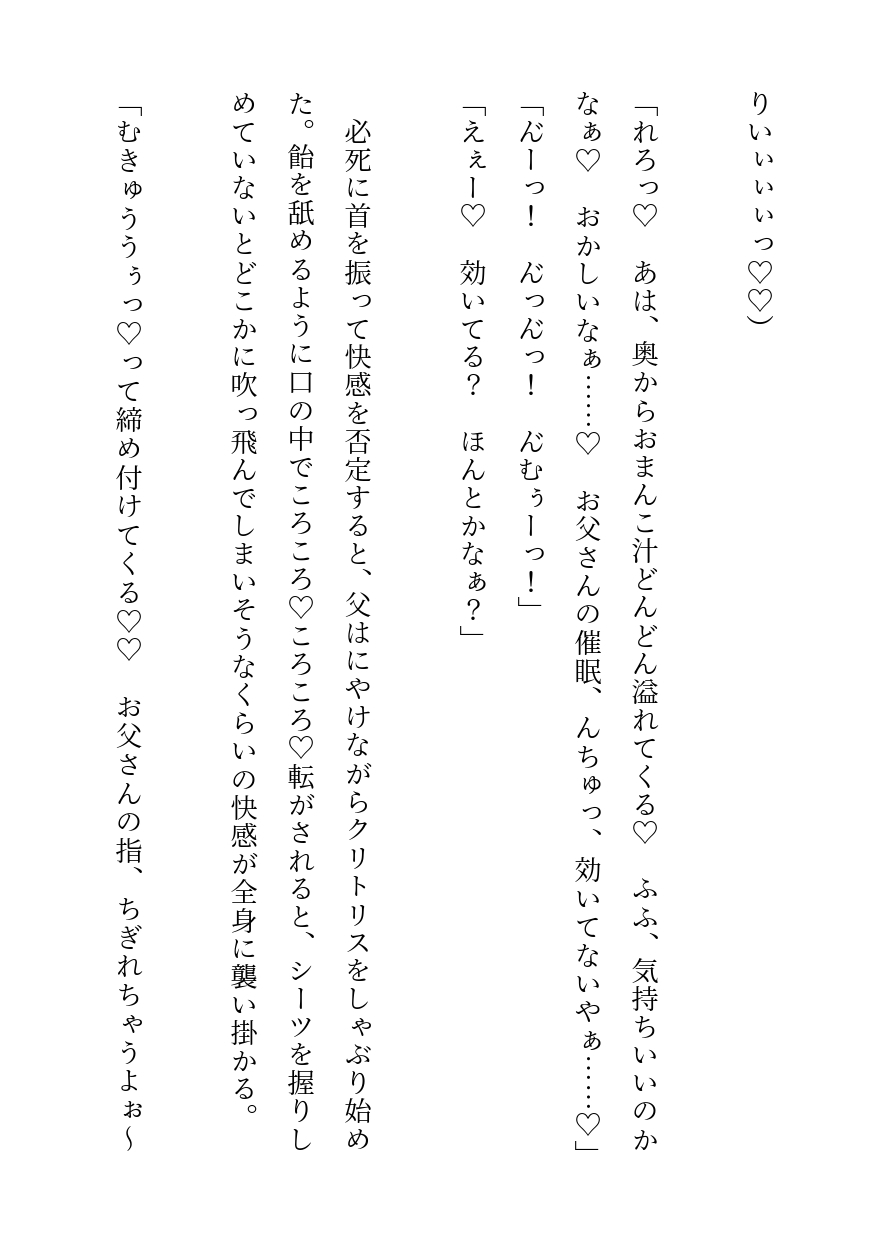 りいぃぃぃっ♡♡）
「れろっ♡　あは、奥からおまんこ汁どんどん溢れてくる♡　ふふ、気持ちいいのか
なぁ♡　おかしいなぁ……♡　お父さんの催眠、んちゅっ、効いてないやぁ……♡」
「ん゛ーっ！　ん゛っん゛っ！　ん゛むぅーっ！」
「えぇー♡　効いてる？　ほんとかなぁ？」
　必死に首を振って快感を否定すると、父はにやけながらクリトリスをしゃぶり始め
た。飴を舐めるように口の中でころころ♡ころころ♡転がされると、シーツを握りし
めていないとどこかに吹っ飛んでしまいそうなくらいの快感が全身に襲い掛かる。
「むきゅううぅっ♡って締め付けてくる♡♡　お父さんの指、ちぎれちゃうよぉ～